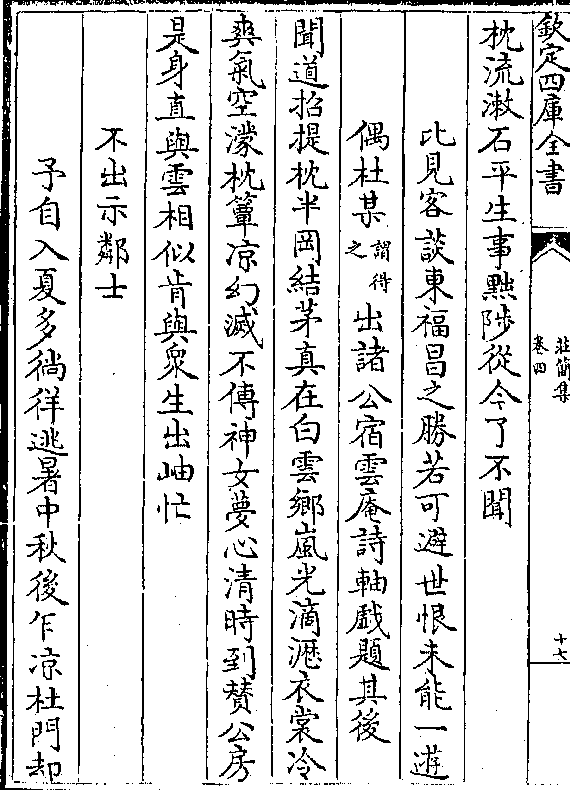 欽定四庫全書
莊簡集
卷四
十七
枕流漱石平生事黜陟從今了不聞
比見客談東福昌之勝若可避世恨未能一遊
偶杜某謂得之出諸公宿雲庵詩軸戲題其後
聞道招提枕半岡結茅真在白雲鄉嵐光滴瀝衣裳冷
爽氣空濛枕簟凉幻滅不傳神女夢心清時到贊公房
是身直與雲相似肯與衆生出岫忙
不出示鄰士
予自入夏多徜徉逃暑中秋後乍凉杜門却